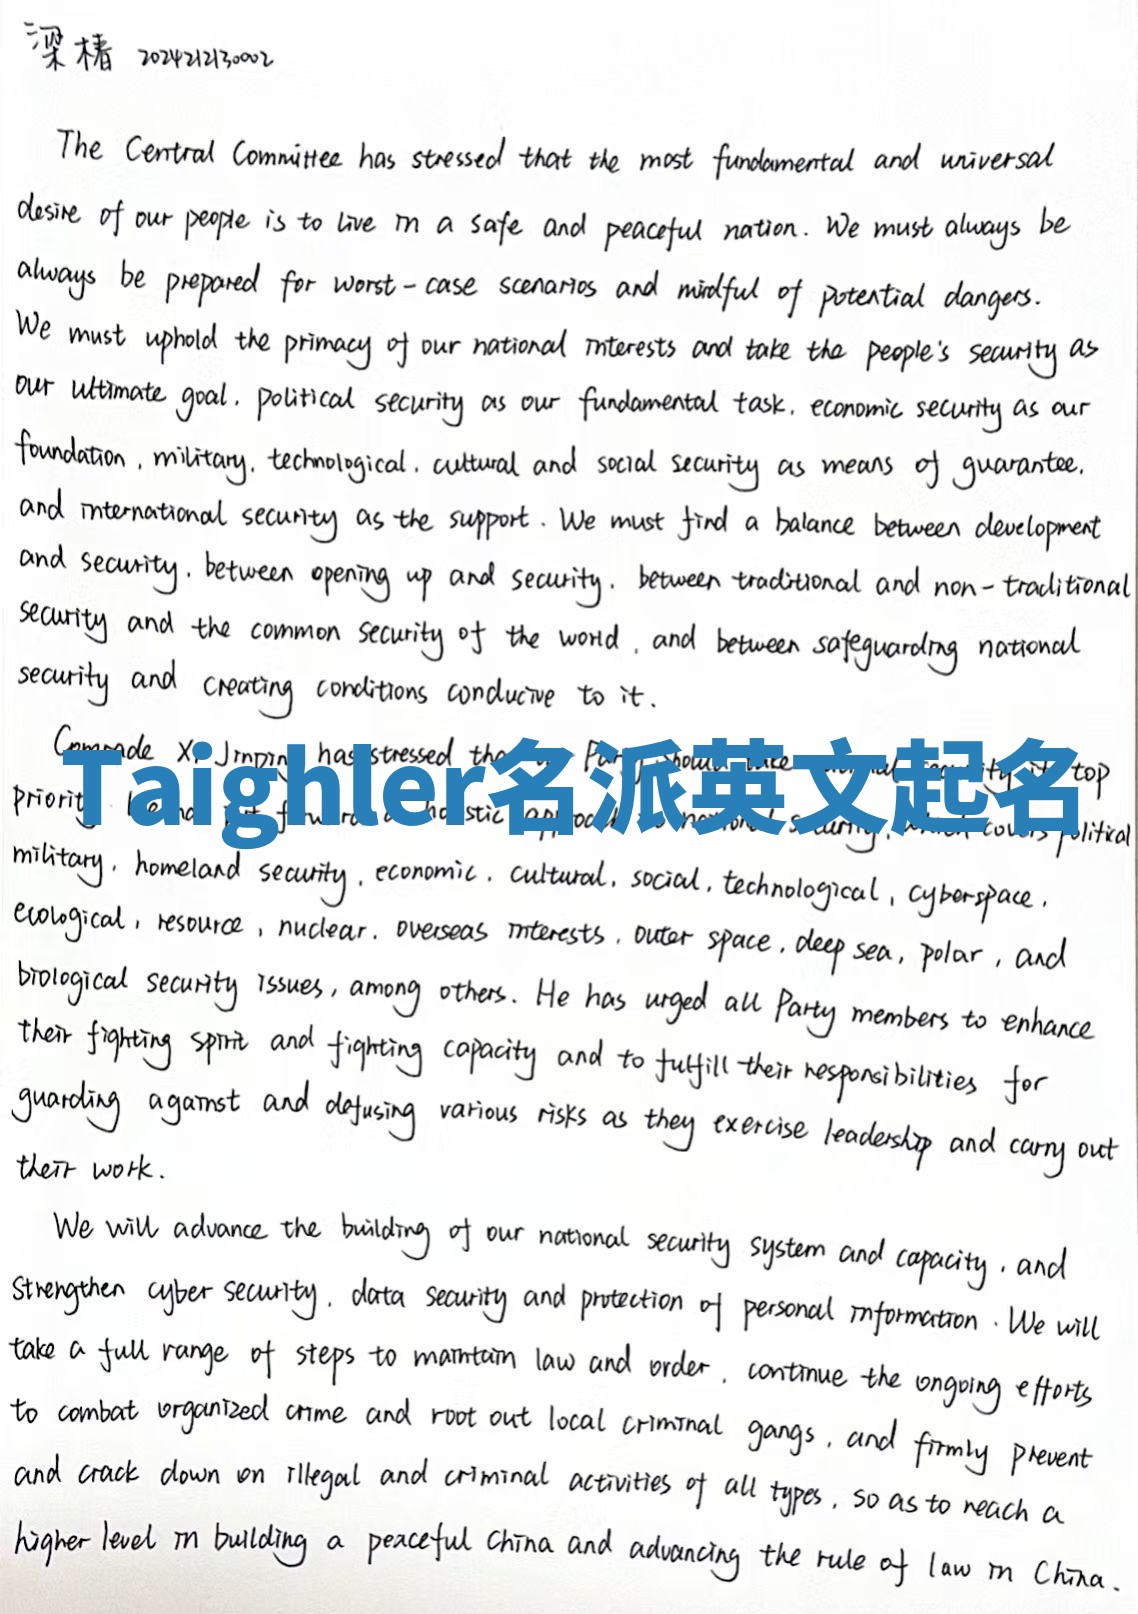 梁椿 2024212130002
The Central Committee has stressed that the most fundamental and universal
desire of our people is to live in a safe and peaceful nation. We must always be
always be prepared for worst-case scenarios and mindful of potential dangers.
We must uphold the primacy of our national interests and take the people's security as
our ultimate goal, political security as our fundamental task, economic security as our
foundation, military, technological, cultural and social security as means of guarantee,
and international security as the support. We must find a balance between development
and security, between opening up and security, between traditional and non-traditional
security and the common security of the world, and between safeguarding national
security and creating conditions conducive to it.
Comrade Xi Jinping has stressed top
Taighler名派英文起名
priority political
military, homeland security, economic, cultural, social, technological, cyberspace,
ecological, resource, nuclear, overseas interests, outer space, deep sea, polar, and
biological security issues, among others. He has urged all Party members to enhance
their fighting spirit and fighting capacity and to fulfill their responsibilities for
guarding against and defusing various risks as they exercise leadership and carry out
their work.
We will advance the building of our national security system and capacity, and
strengthen cyber security, data security and protection of personal information. We will
take a full range of steps to maintain law and order, continue the ongoing efforts
to combat organized crime and root out local criminal gangs, and firmly prevent
and crack down on illegal and criminal activities of all types, so as to reach a
higher level in building a peaceful China and advancing the rule of law in China.